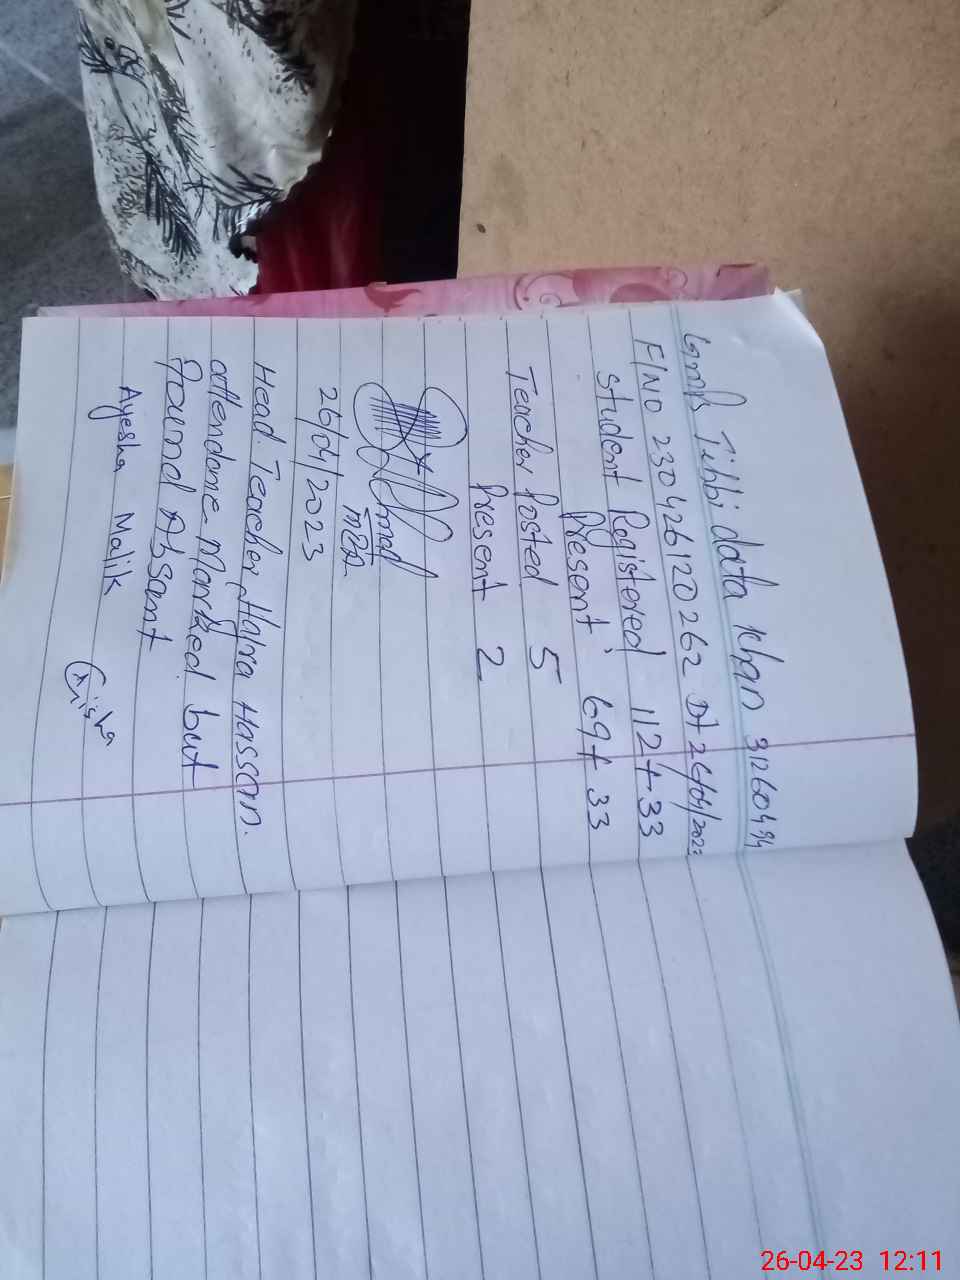 Gmps Tibbi data Khan 31260494
F/No 230426120262 Dt 26/04/2023
Student Registered 112+33
Present 69+33
Teacher Posted 5
Present 2
Ahmad
26/04/2023
Head Teacher Hajra Hassan.
attendance Marked but
found Absant
Ayesha Malik
Aisha
26-04-23 12:11